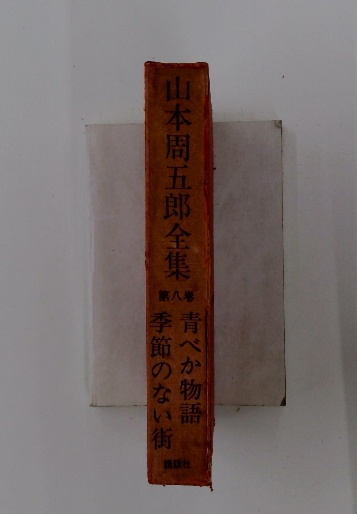 山本周五郎全集
第八巻
青べか物語
季節のない街
講談社